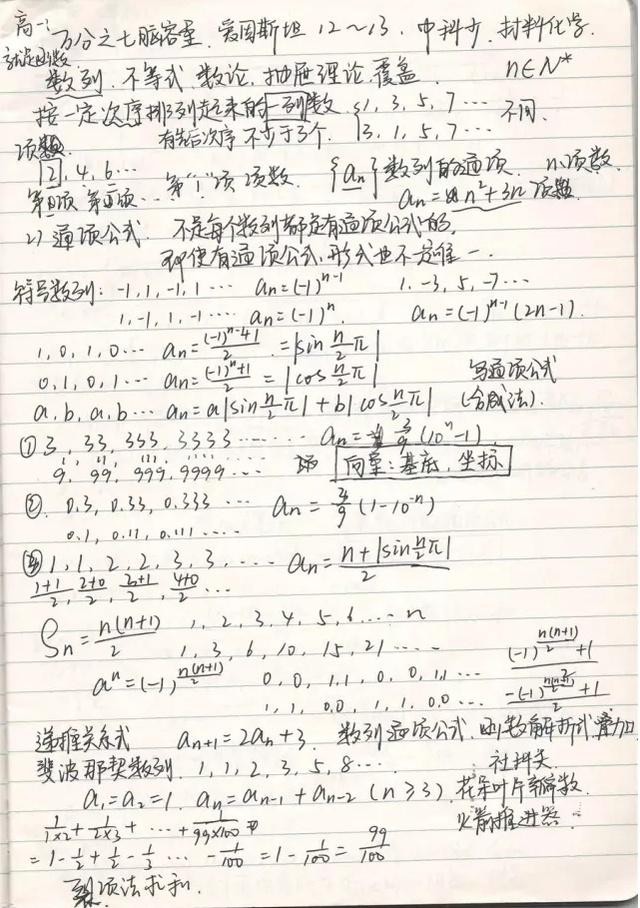 高一
万分之七脑容量. 爱因斯坦 12～13. 中科大. 材料化学.
数列. 不等式. 数论. 抽屉理论. 覆盖 n∈N*
按一定次序排列起来的一列数. {1, 3, 5, 7… 不同.
有先后次序 不少于3个. {3, 1, 5, 7…
项数
2, 4, 6… 第“1”项 项数. {an} 数列的通项. n项数.
第1项 第2项… an = n²+3n 项数
2) 通项公式. 不是每个数列都是有通项公式的.
即使有通项公式. 形式也不是唯一.
符号数列: -1, 1, -1, 1… an=(-1)^(n-1) 1, -3, 5, -7…
1, -1, 1, -1… an=(-1)^n. an=(-1)^(n-1)(2n-1).
1, 0, 1, 0… an=((-1)^(n-1)+1)/2 .=|sin n/2 π|
0, 1, 0, 1… an=((-1)^n+1)/2 = |cos n/2 π| 写通项公式
a, b, a, b… an=a|sin n/2 π|+b|cos n/2 π| (合成法).
① 3, 33, 333, 3333…… an= 3/9 (10^n-1).
9, 99, 999, 9999… 向量: 基底. 坐标
②. 0.3, 0.33, 0.333… an = 3/9 (1-10^(-n))
0.1, 0.11, 0.111….
③ 1, 1, 2, 2, 3, 3, … an = (n+|sin n/2 π|)/2
(1+1)/2, (2+0)/2, (3+1)/2, (4+0)/2…
Sn = n(n+1)/2 1, 2, 3, 4, 5, 6… n
1, 3, 6, 10, 15, 21…… ((-1)^(n(n+1)/2)+1)/2
a^n=(-1)^(n(n+1)/2) 0, 0, 1, 1, 0, 0, 1, 1, …
1, 1, 0, 0, 1, 1, 0, 0… (-(-1)^(n(n+1)/2)+1)/2
递推关系式 an+1=2an+3. 数列通项公式. 函数解析式 叠加
斐波那契数列. 1, 1, 2, 3, 5, 8… 社科类.
a1=a2=1. an=an-1+an-2 (n≥3). 花朵叶片瓣数.
1/(1×2)+1/(2×3)+…+1/(99×100) 火箭推进器…
=1-1/2+1/2-1/3…-1/100=1-1/100=99/100
裂项法求和.